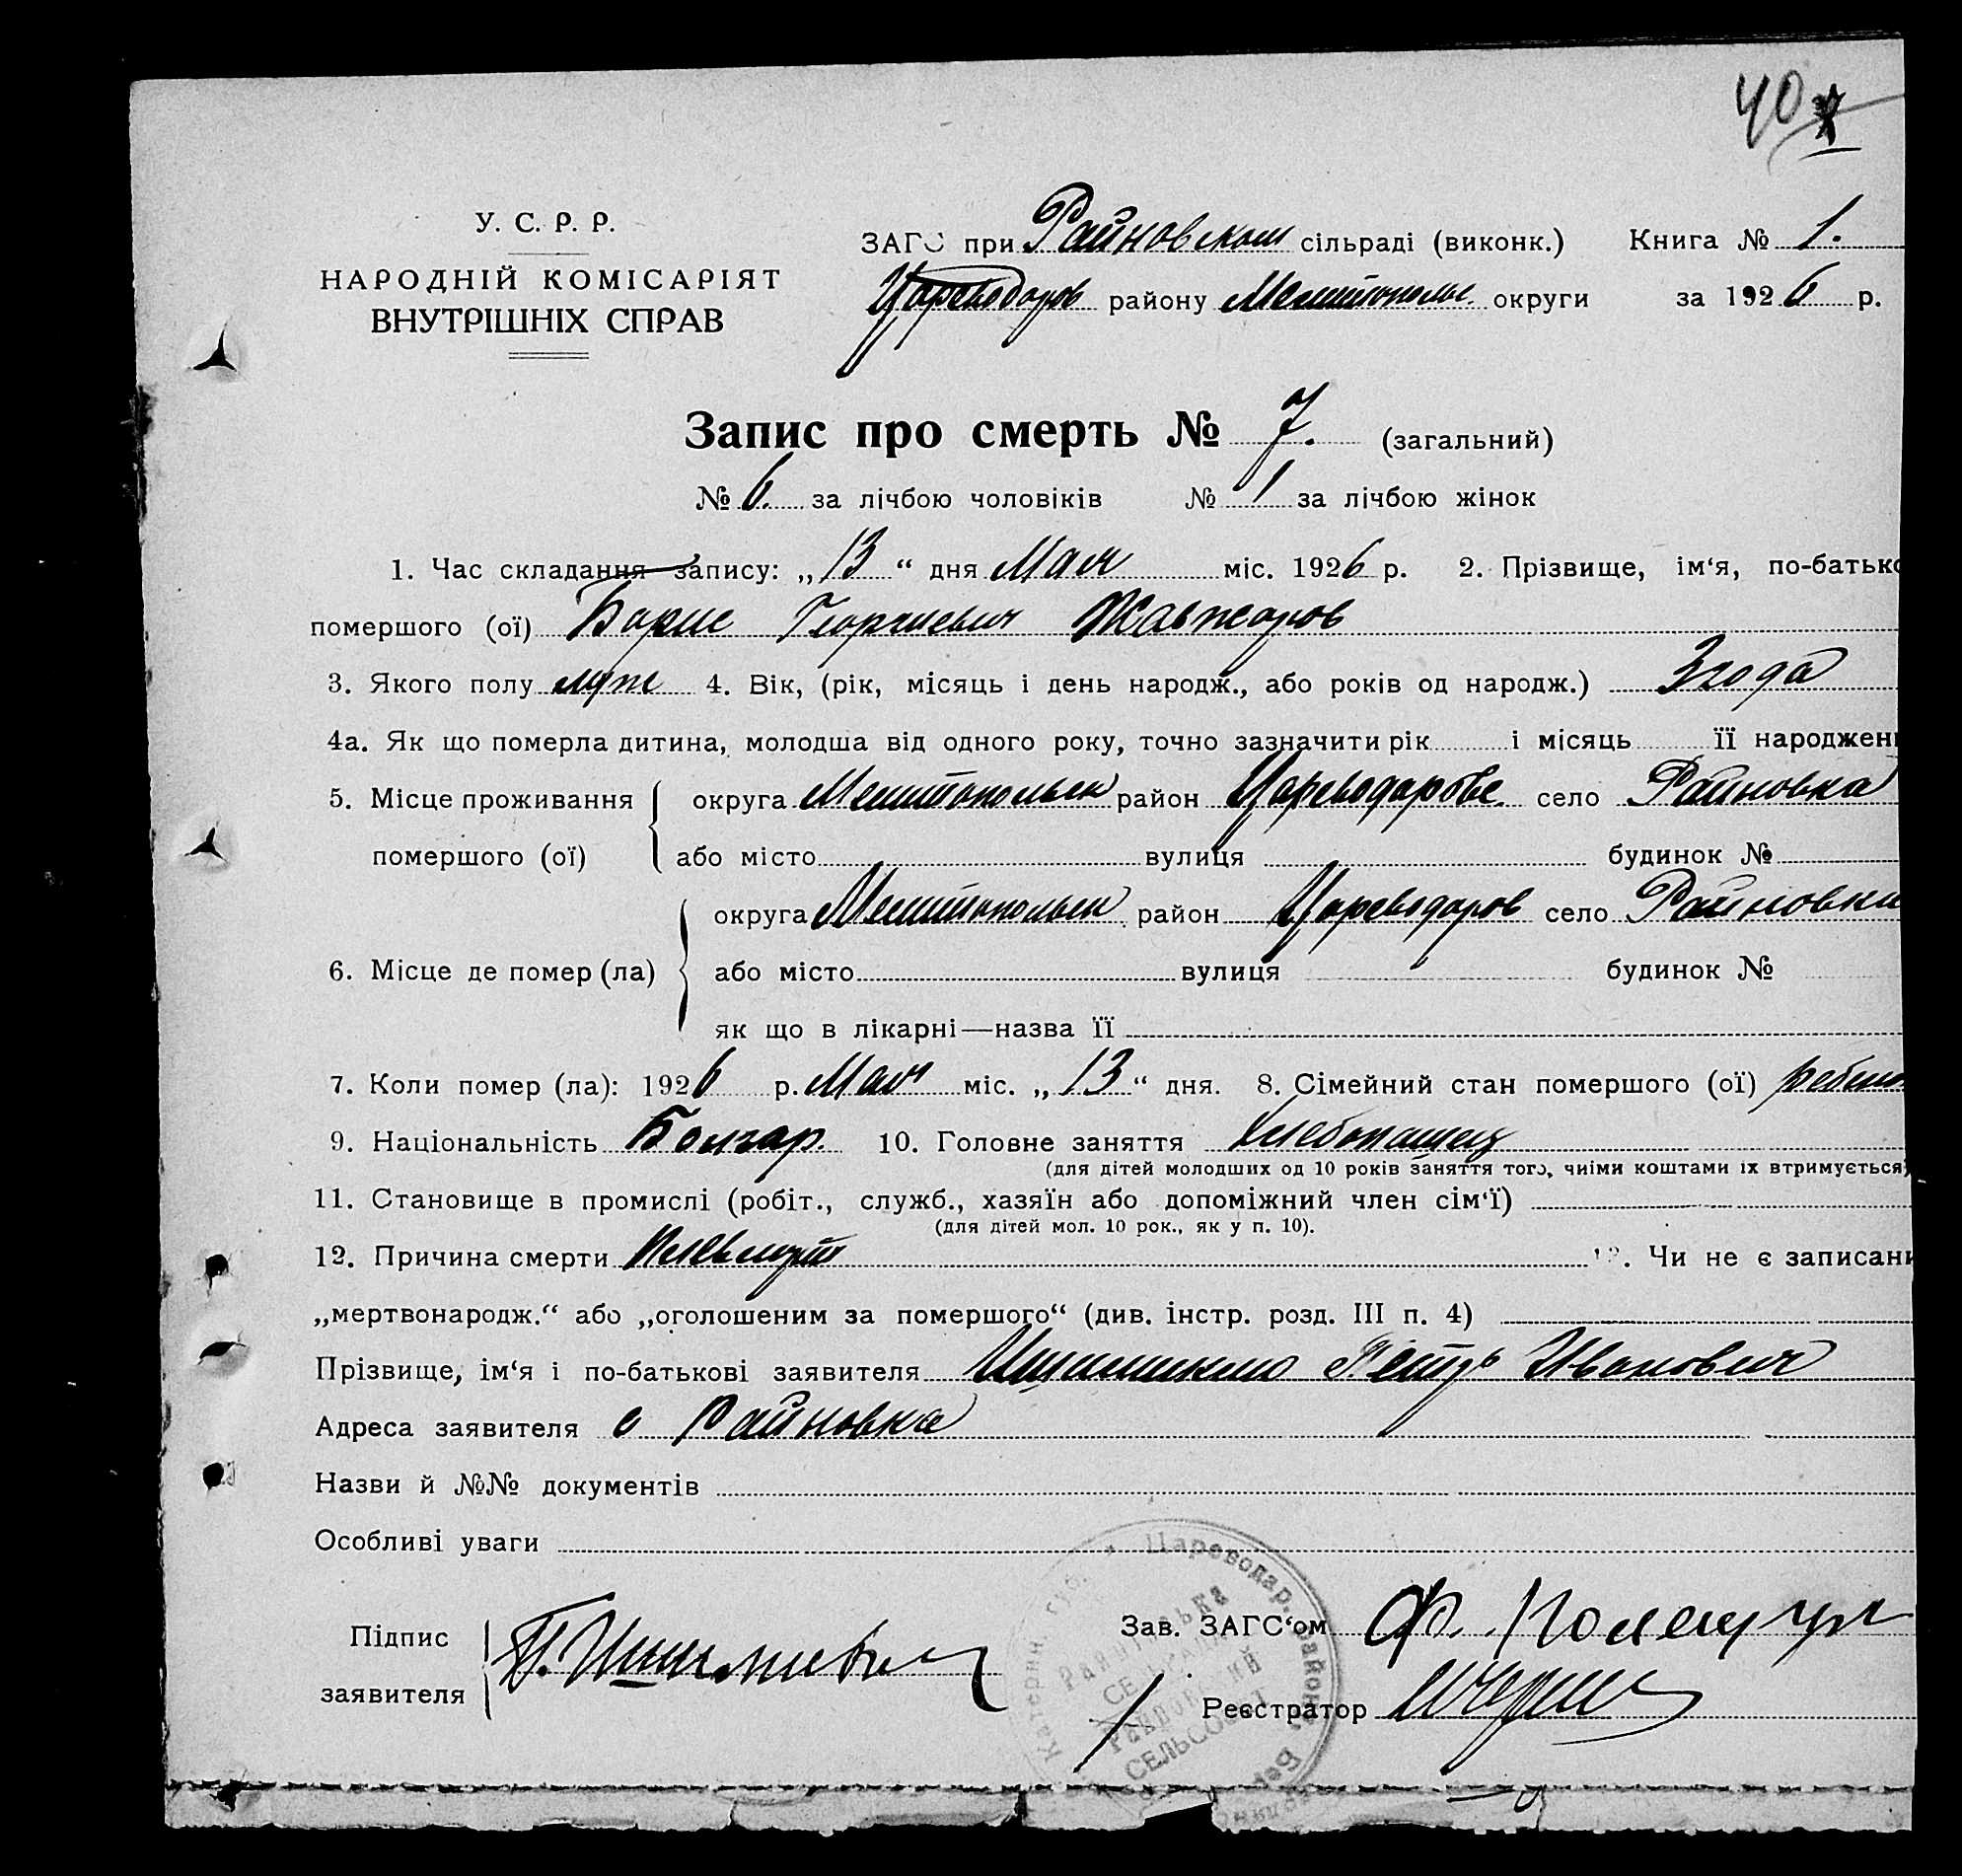 40
У. С. Р. Р.
НАРОДНІЙ КОМІСАРІЯТ
ВНУТРІШНІХ СПРАВ
ЗАГС при Райновском сільраді (виконк.) Книга № 1.
Цареводаров району Мелитопольс. округи за 1926 р.
Запис про смерть № 7. (загальний)
№ 6. за лічбою чоловіків № 1 за лічбою жінок
1. Час складання запису: „13“ дня Мая міс. 1926 р. 2. Прізвище, ім‘я, по-батько
помершого (ої) Борис Георгиевич Жавжаров
3. Якого полу муж 4. Вік, (рік, місяць і день народж., або років од народж.) 3 года
4а. Як що померла дитина, молодша від одного року, точно зазначити рік і місяць її народжен
5. Місце проживання округа Мелитопольск район Цареводаровс. село Райновка
помершого (ої) або місто вулиця будинок №
округа Мелитопольск район Цареводаров село Райновка
6. Місце де помер (ла) або місто вулиця будинок №
як що в лікарні—назва її
7. Коли помер (ла): 1926 р. Мая міс. „13“ дня. 8. Сімейний стан помершого (ої) ребено
9. Національність Болгар. 10. Головне заняття Хлебопашец
(для дітей молодших од 10 років заняття того, чиїми коштами їх втримується)
11. Становище в промислі (робіт., служб., хазяїн або допоміжний член сім‘ї)
(для дітей мол. 10 рок., як у п. 10).
12. Причина смерти Плеврит 13. Чи не є записани
„мертвонародж.“ або „оголошеним за помершого“ (див. інстр. розд. III п. 4)
Прізвище, ім‘я і по-батькові заявителя Петр Иванович
Адреса заявителя с Райновка
Назви й №№ документів
Особливі уваги
Підпис
заявителя
Зав. ЗАГС‘ом Ф. Полещук
Реєстратор
Катерин. губ. * Цареводар. район
СЕЛЬСОВЕТ